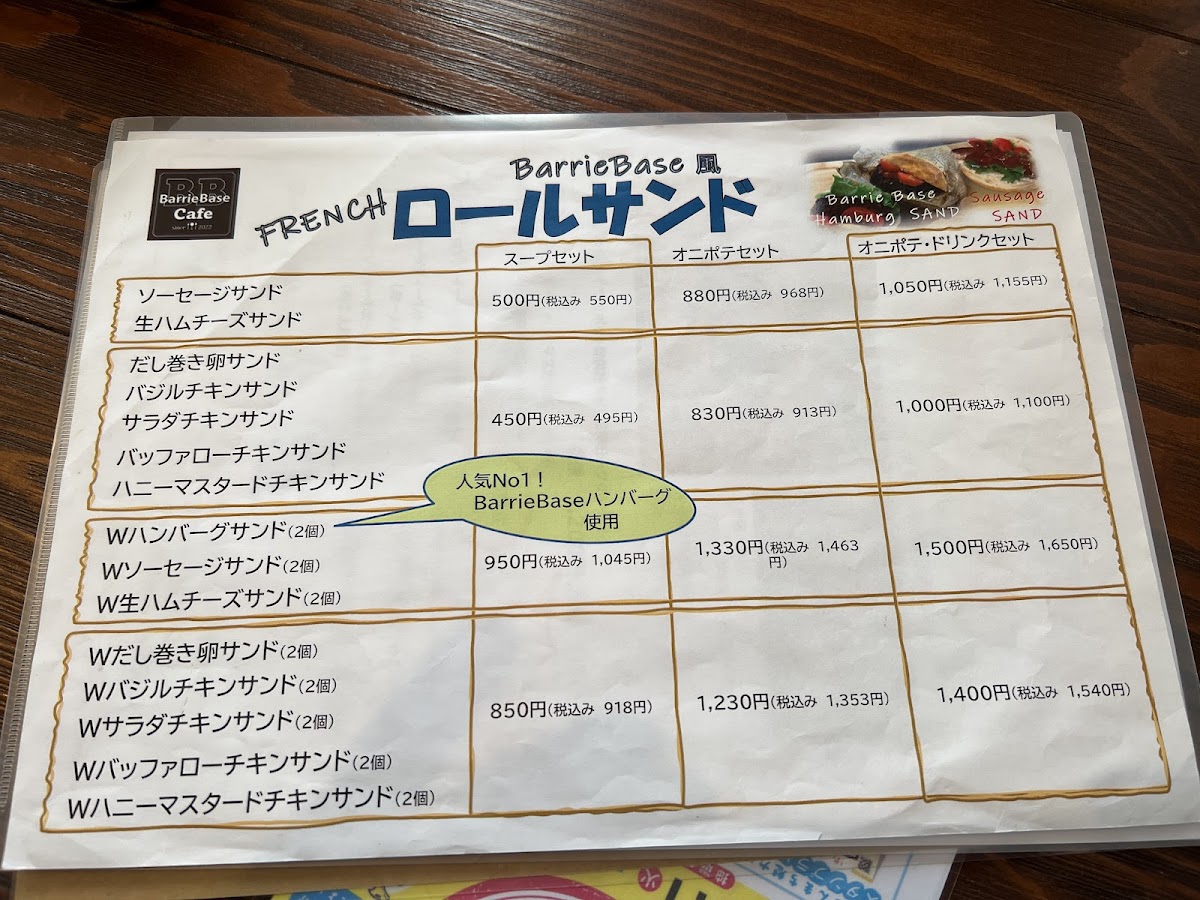 BB
BarrieBase
Cafe
since 2022
BarrieBase 風
FRENCH ロールサンド
Barrie Base
Hamburg SAND
Sausage
SAND
スープセット オニポテセット オニポテ・ドリンクセット
ソーセージサンド
生ハムチーズサンド
500円(税込み 550円) 880円(税込み 968円) 1,050円(税込み 1,155円)
だし巻き卵サンド
バジルチキンサンド
サラダチキンサンド
バッファローチキンサンド
ハニーマスタードチキンサンド
450円(税込み 495円) 830円(税込み 913円) 1,000円(税込み 1,100円)
人気No1！
BarrieBaseハンバーグ
使用
Wハンバーグサンド(2個)
Wソーセージサンド(2個)
W生ハムチーズサンド(2個)
950円(税込み 1,045円) 1,330円(税込み 1,463
円) 1,500円(税込み 1,650円)
Wだし巻き卵サンド(2個)
Wバジルチキンサンド(2個)
Wサラダチキンサンド(2個)
Wバッファローチキンサンド(2個)
Wハニーマスタードチキンサンド(2個)
850円(税込み 918円) 1,230円(税込み 1,353円) 1,400円(税込み 1,540円)
火